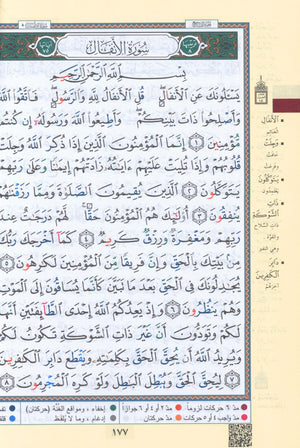 سُورَةُ الأَنفَال
بِسْمِ اللَّهِ الرَّحْمَٰنِ الرَّحِيمِ
يَسْـَٔلُونَكَ عَنِ الْأَنفَالِ قُلِ الْأَنفَالُ لِلَّهِ وَالرَّسُولِ فَاتَّقُوا اللَّهَ
وَأَصْلِحُوا ذَاتَ بَيْنِكُمْ وَأَطِيعُوا اللَّهَ وَرَسُولَهُ إِن كُنتُم
مُّؤْمِنِينَ ١ إِنَّمَا الْمُؤْمِنُونَ الَّذِينَ إِذَا ذُكِرَ اللَّهُ وَجِلَتْ
قُلُوبُهُمْ وَإِذَا تُلِيَتْ عَلَيْهِمْ ءَايَٰتُهُ زَادَتْهُمْ إِيمَانًا وَعَلَىٰ رَبِّهِمْ
يَتَوَكَّلُونَ ٢ الَّذِينَ يُقِيمُونَ الصَّلَوٰةَ وَمِمَّا رَزَقْنَٰهُمْ
يُنفِقُونَ ٣ أُولَٰئِكَ هُمُ الْمُؤْمِنُونَ حَقًّا لَّهُمْ دَرَجَٰتٌ عِندَ
رَبِّهِمْ وَمَغْفِرَةٌ وَرِزْقٌ كَرِيمٌ ٤ كَمَا أَخْرَجَكَ رَبُّكَ
مِن بَيْتِكَ بِالْحَقِّ وَإِنَّ فَرِيقًا مِّنَ الْمُؤْمِنِينَ لَكَٰرِهُونَ ٥
يُجَٰدِلُونَكَ فِي الْحَقِّ بَعْدَمَا تَبَيَّنَ كَأَنَّمَا يُسَاقُونَ إِلَى الْمَوْتِ
وَهُمْ يَنظُرُونَ ٦ وَإِذْ يَعِدُكُمُ اللَّهُ إِحْدَى الطَّائِفَتَيْنِ أَنَّهَا
لَكُمْ وَتَوَدُّونَ أَنَّ غَيْرَ ذَاتِ الشَّوْكَةِ تَكُونُ لَكُمْ
وَيُرِيدُ اللَّهُ أَن يُحِقَّ الْحَقَّ بِكَلِمَٰتِهِ وَيَقْطَعَ دَابِرَ الْكَٰفِرِينَ
٧ لِيُحِقَّ الْحَقَّ وَيُبْطِلَ الْبَٰطِلَ وَلَوْ كَرِهَ الْمُجْرِمُونَ ٨
الأَنفَالِ
الغنائم
وَجِلَتْ
يَتَوَكَّلُونَ
ذَاتِ
الشَّوْكَةِ
دَابِرَ
الْكَافِرِينَ
مد ٦ حركات لزوماً
مد ٢ أو ٤ أو ٦ جوازاً
مد حركتان
١٧٧